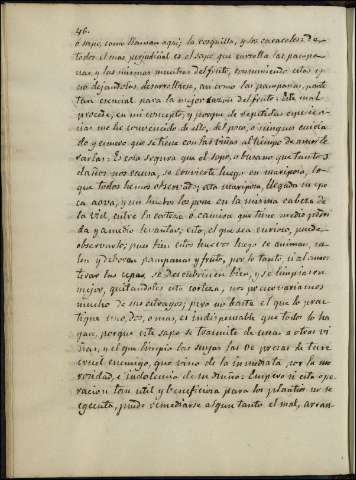 46.
ó sapo, como llaman aqui; la rosquilla, y los caracoles: de
todos el mas perjudicial es el sapo que enrrolla las pampa-
nas, y las mismas muestras del fruto, consumiendo estas es-
no dejandolas desarrollarse, asi como las pampanas, parte
tan esencial para la mejor sazon del fruto: Este mal
procede, en mi concepto, y porque de repetidas experien-
cias me he convencido de ello, del poco, ó ningun cuida-
do y esmero que se tiene con las viñas al tiempo de amorte-
rarlas: Es cosa segura que el sapo, ó busano que tantos
daños nos causa, se convierte luego en mariposa, lo
que todos hemos observado; esta mariposa, llegada su epo-
ca aova, y sus huebos los pone en la misma cabeza de
la vid, entre la corteza ó camisa que tiene medio podri-
da y á medio levantar; esto, el que sea curioso, puede
observarlo; pues bien estos huevos luego se animan, sa-
len y deboran pampanas y fruto, por lo tanto, si al amor-
terar las cepas se descubriesen bien, y se limpiasen
mejor, quitandoles esta corteza, nos preservariamos
mucho de sus estragos; pero no basta el que lo prac-
tique uno, dos, ó mas, es indispensable que todos lo ha-
gan, porque este sapo se trasmite de unas á otras vi-
ñas, y el que limpia las suyas las ve presas de este
cruel enemigo, que vino de la inmediata por la mo-
rosidad, é indolencia de su dueño: Empero si esta ope-
racion tan util y beneficiosa para los plantios no se
egecuta, puede remediarse algun tanto el mal, arran-